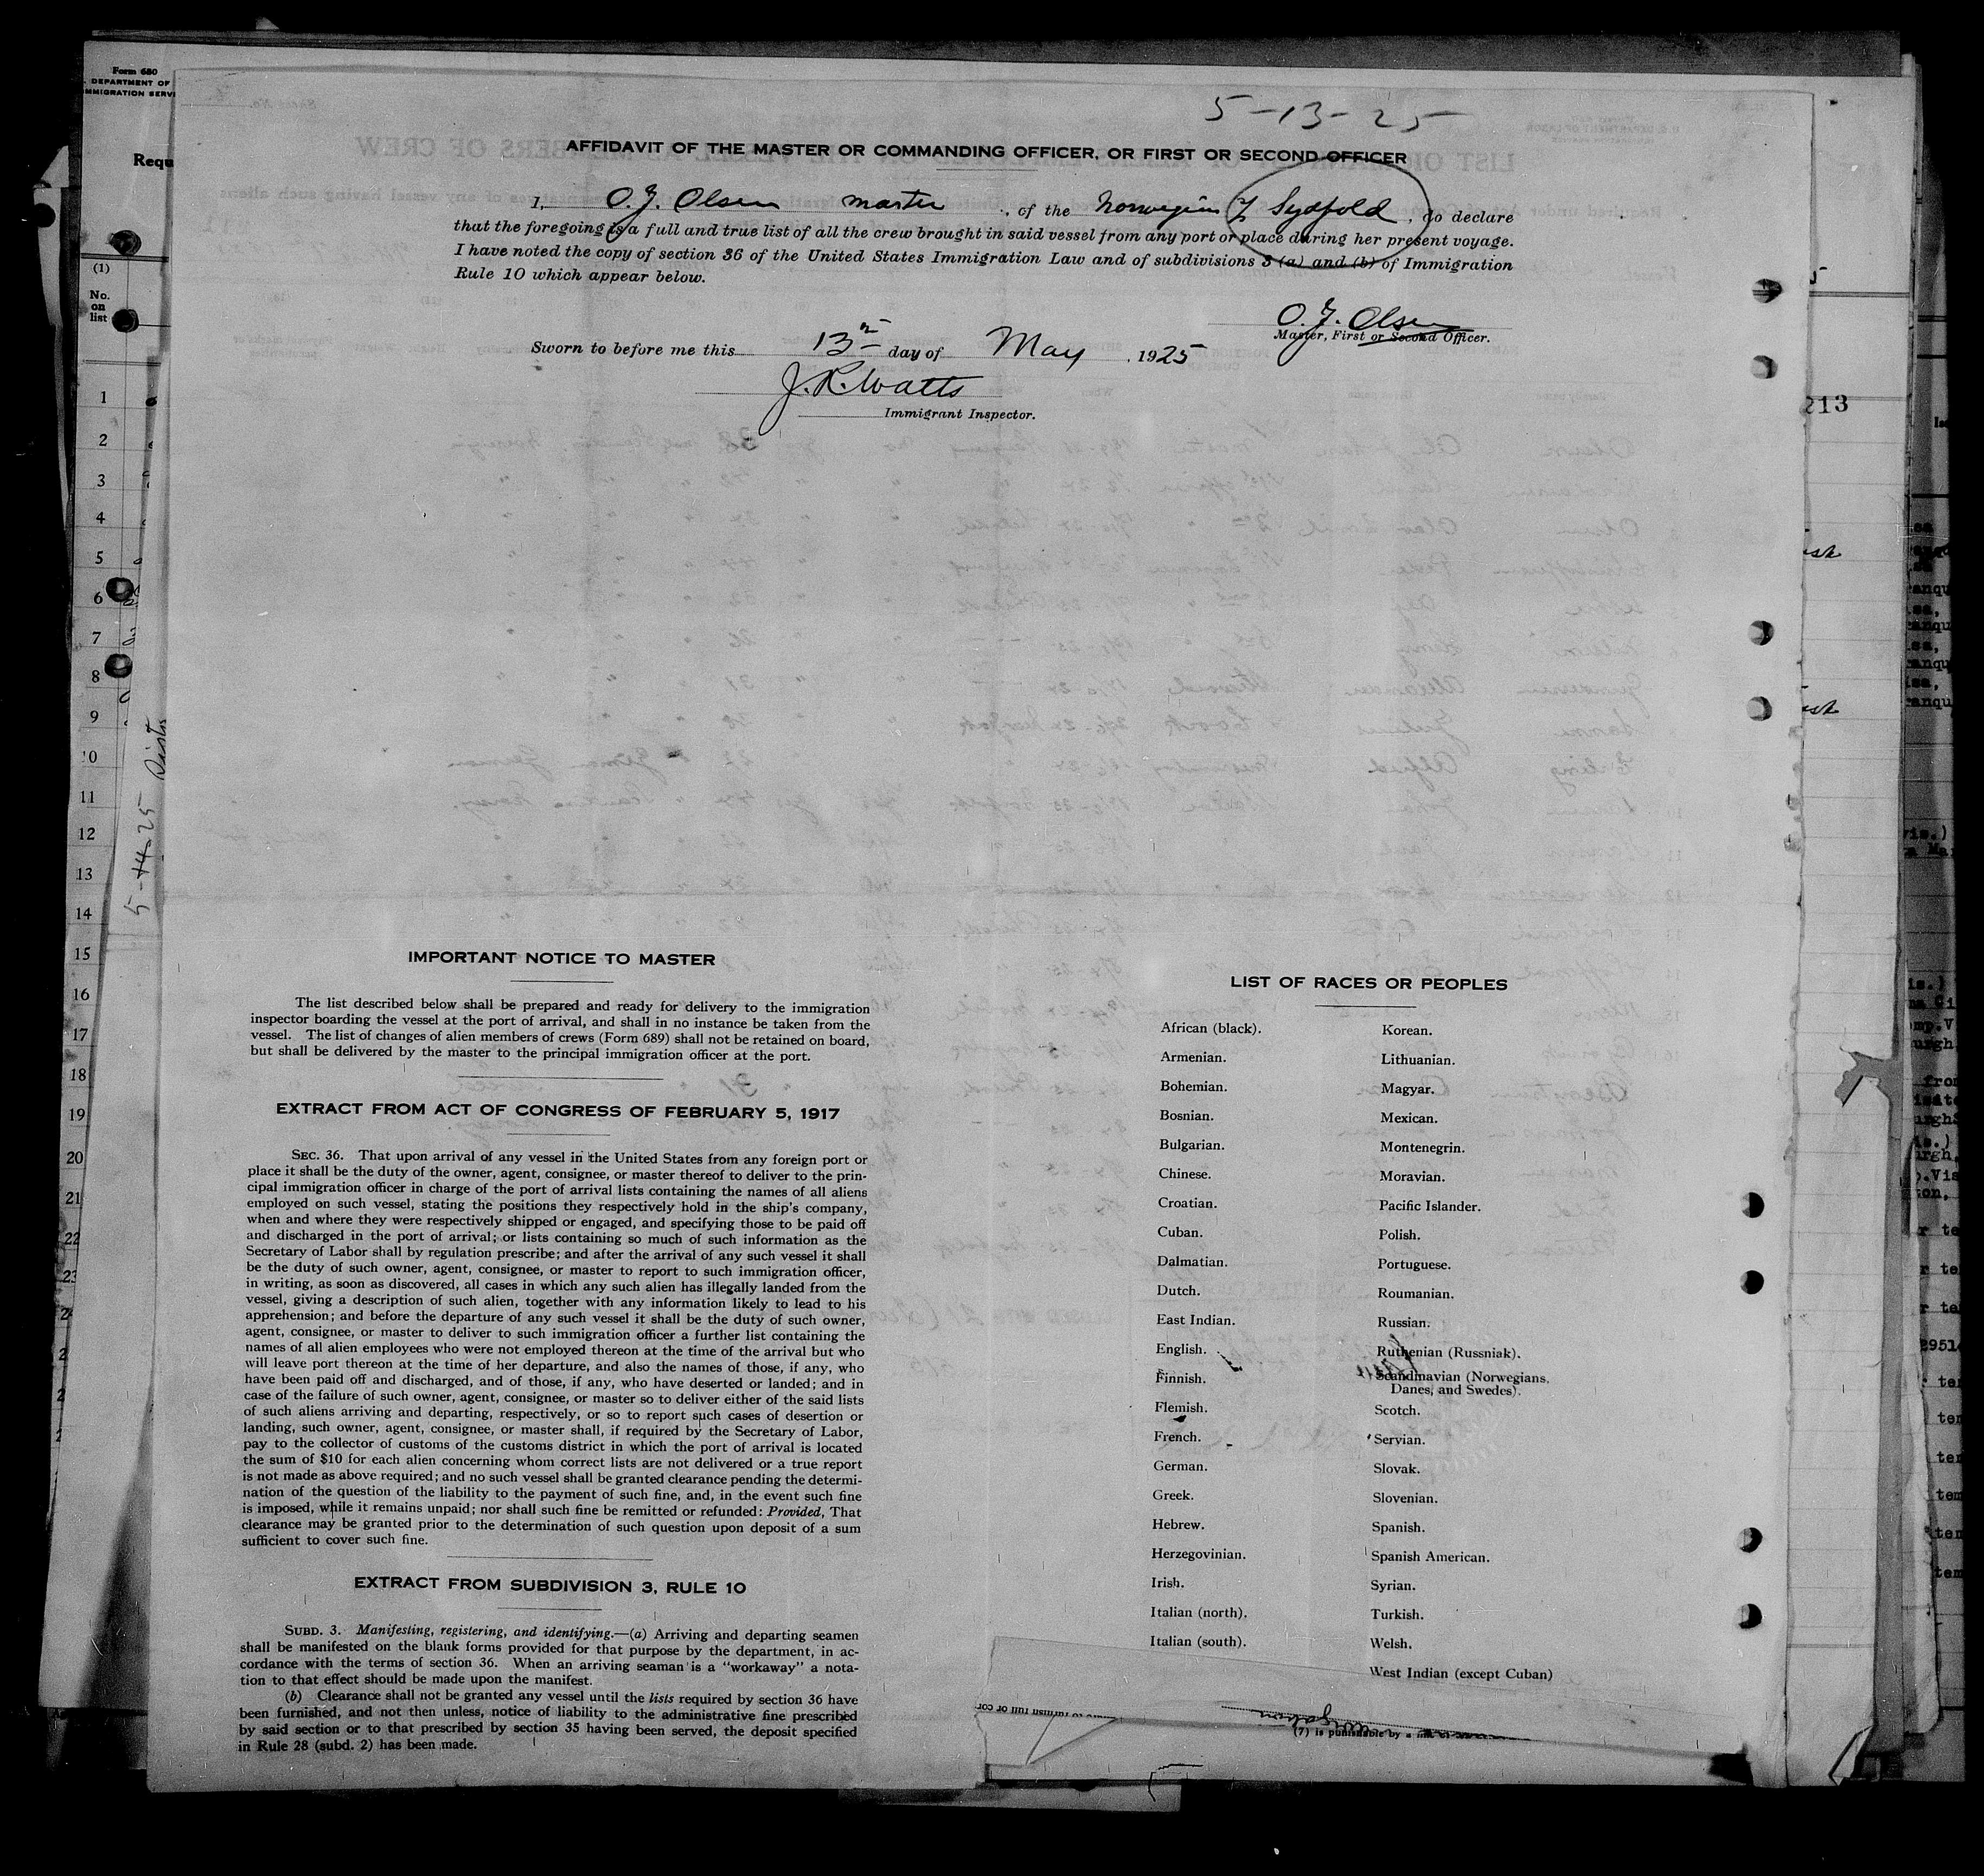 Form 680
DEPARTMENT OF
IMMIGRATION SERVI
Requ
(1)
No.
on
list
1
2
3
4
5
6
7
8
9
10
11
12
13
14
15
16
17
18
19
20
21
22
23
5-14-25
213
5-13-25
AFFIDAVIT OF THE MASTER OR COMMANDING OFFICER, OR FIRST OR SECOND OFFICER
I, O. J. Olsen master, of the Norwegian Sydfold, do declare
that the foregoing is a full and true list of all the crew brought in said vessel from any port or place during her present voyage.
I have noted the copy of section 36 of the United States Immigration Law and of subdivisions 3 (a) and (b) of Immigration
Rule 10 which appear below.
O. J. Olsen
Master, First or Second Officer.
Sworn to before me this 13 day of May, 1925
J. R. Watts
Immigrant Inspector.
IMPORTANT NOTICE TO MASTER
The list described below shall be prepared and ready for delivery to the immigration
inspector boarding the vessel at the port of arrival, and shall in no instance be taken from the
vessel. The list of changes of alien members of crews (Form 689) shall not be retained on board,
but shall be delivered by the master to the principal immigration officer at the port.
EXTRACT FROM ACT OF CONGRESS OF FEBRUARY 5, 1917
SEC. 36. That upon arrival of any vessel in the United States from any foreign port or
place it shall be the duty of the owner, agent, consignee, or master thereof to deliver to the prin-
cipal immigration officer in charge of the port of arrival lists containing the names of all aliens
employed on such vessel, stating the positions they respectively hold in the ship's company,
when and where they were respectively shipped or engaged, and specifying those to be paid off
and discharged in the port of arrival; or lists containing so much of such information as the
Secretary of Labor shall by regulation prescribe; and after the arrival of any such vessel it shall
be the duty of such owner, agent, consignee, or master to report to such immigration officer,
in writing, as soon as discovered, all cases in which any such alien has illegally landed from the
vessel, giving a description of such alien, together with any information likely to lead to his
apprehension; and before the departure of any such vessel it shall be the duty of such owner,
agent, consignee, or master to deliver to such immigration officer a further list containing the
names of all alien employees who were not employed thereon at the time of the arrival but who
will leave port thereon at the time of her departure, and also the names of those, if any, who
have been paid off and discharged, and of those, if any, who have deserted or landed; and in
case of the failure of such owner, agent, consignee, or master so to deliver either of the said lists
of such aliens arriving and departing, respectively, or so to report such cases of desertion or
landing, such owner, agent, consignee, or master shall, if required by the Secretary of Labor,
pay to the collector of customs of the customs district in which the port of arrival is located
the sum of $10 for each alien concerning whom correct lists are not delivered or a true report
is not made as above required; and no such vessel shall be granted clearance pending the determi-
nation of the question of the liability to the payment of such fine, and, in the event such fine
is imposed, while it remains unpaid; nor shall such fine be remitted or refunded: Provided, That
clearance may be granted prior to the determination of such question upon deposit of a sum
sufficient to cover such fine.
EXTRACT FROM SUBDIVISION 3, RULE 10
SUBD. 3. Manifesting, registering, and identifying.—(a) Arriving and departing seamen
shall be manifested on the blank forms provided for that purpose by the department, in ac-
cordance with the terms of section 36. When an arriving seaman is a "workaway" a nota-
tion to that effect should be made upon the manifest.
(b) Clearance shall not be granted any vessel until the lists required by section 36 have
been furnished, and not then unless, notice of liability to the administrative fine prescribed
by said section or to that prescribed by section 35 having been served, the deposit specified
in Rule 28 (subd. 2) has been made.
LIST OF RACES OR PEOPLES
African (black).
Armenian.
Bohemian.
Bosnian.
Bulgarian.
Chinese.
Croatian.
Cuban.
Dalmatian.
Dutch.
East Indian.
English.
Finnish.
Flemish.
French.
German.
Greek.
Hebrew.
Herzegovinian.
Irish.
Italian (north).
Italian (south).
Korean.
Lithuanian.
Magyar.
Mexican.
Montenegrin.
Moravian.
Pacific Islander.
Polish.
Portuguese.
Roumanian.
Russian.
Ruthenian (Russniak).
Scandinavian (Norwegians,
Danes, and Swedes).
Scotch.
Servian.
Slovak.
Slovenian.
Spanish.
Spanish American.
Syrian.
Turkish.
Welsh.
West Indian (except Cuban)
(7) is punishable by a